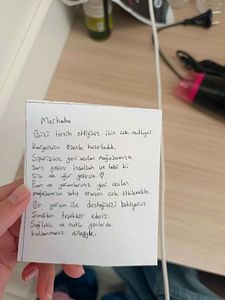 Merhaba
Bizi tercih ettiğiniz için çok mutluyuz.
Kargonuzu özenle hazırladık.
Siparişiniz yeni açılan mağazamıza
şans getirir inşallah ve tabi ki
size de uğur getirsin ♡
Puan ve yorumlarınız yeni açılan
mağazamızın satış oranını çok etkilemekte.
Bir yorum ile desteğinizi bekliyoruz.
Şimdiden teşekkür ederiz.
Sağlıklı ve mutlu günlerde
kullanmanız dileğiyle.